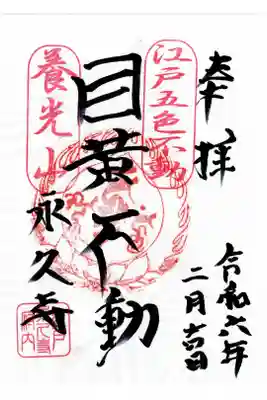 奉拝
令和六年
二月吉日
江戸五色不動
目黄不動
養光山
永久寺